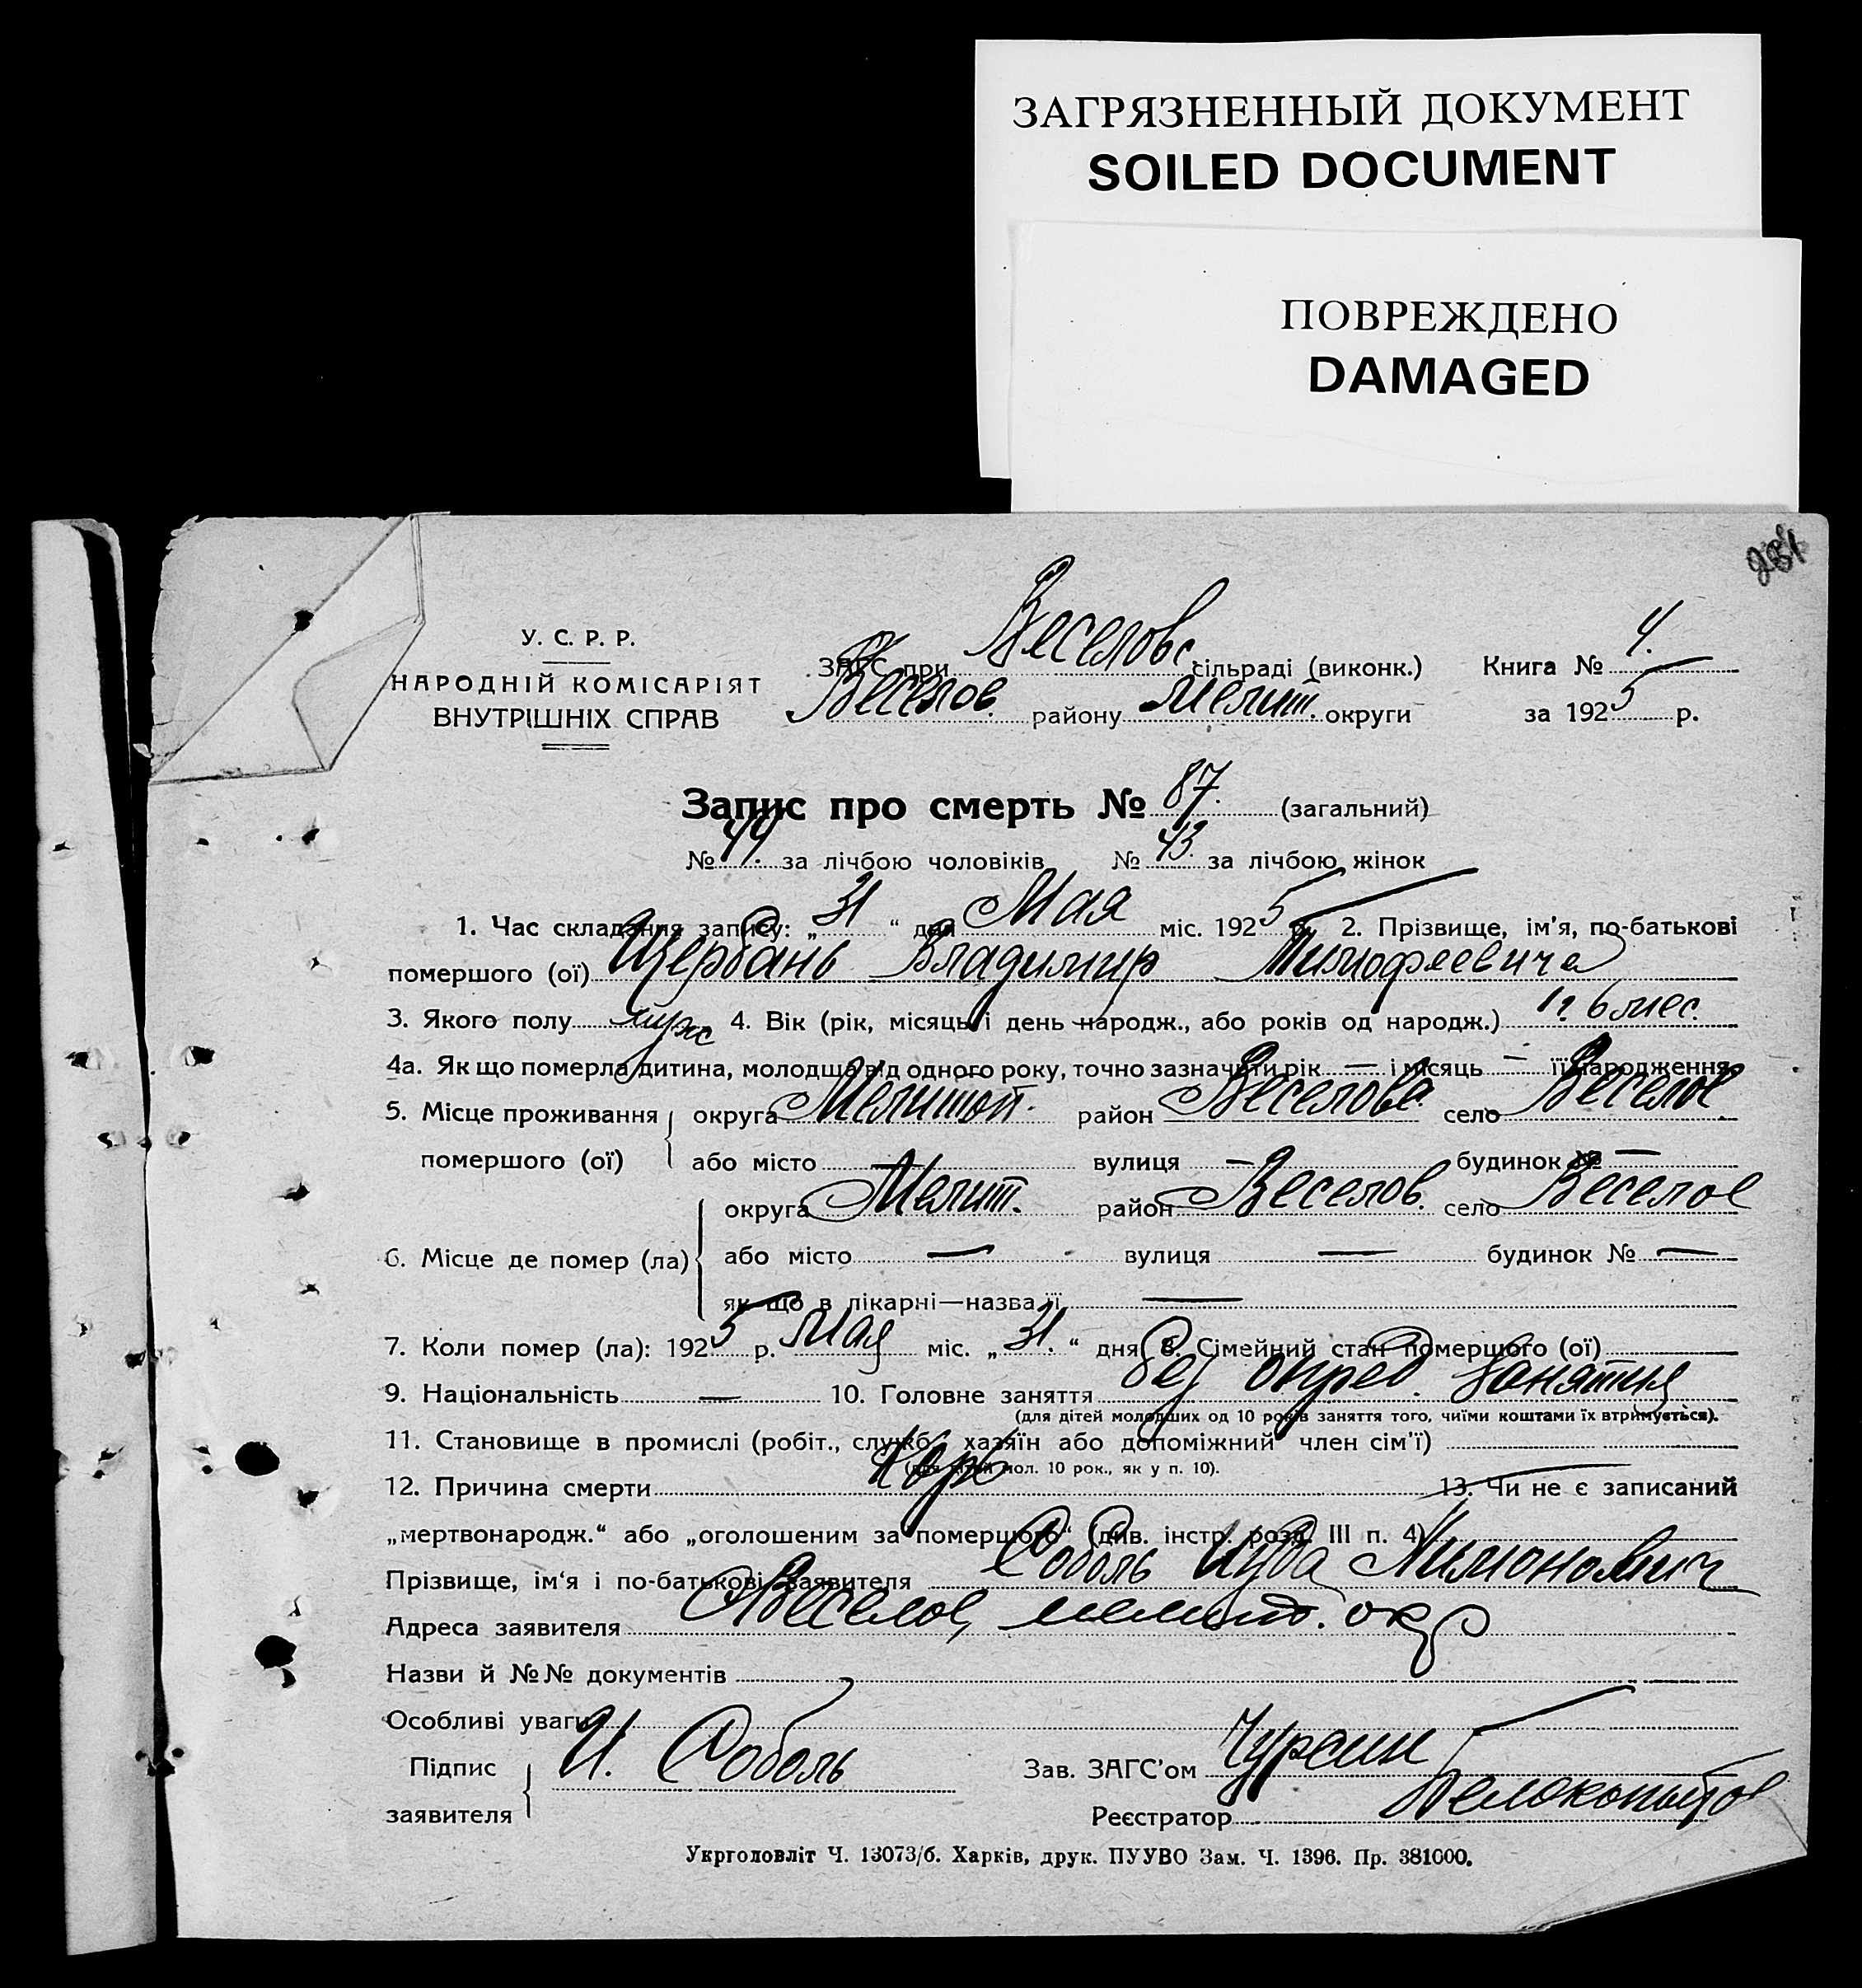 ЗАГРЯЗНЕННЫЙ ДОКУМЕНТ
SOILED DOCUMENT
ПОВРЕЖДЕНО
DAMAGED
У. С. Р. Р.
НАРОДНІЙ КОМІСАРІЯТ
ВНУТРІШНІХ СПРАВ
ЗАГС при Веселовс сільраді (виконк.) Книга № 4.
Веселов. району Мелит. округи за 1925 р.
Запис про смерть № 87. (загальний)
№ 44. за лічбою чоловіків № 43. за лічбою жінок
1. Час складання запису: „ 31 “ дня Мая міс. 1925 р. 2. Прізвище, ім'я, по-батькові
помершого (ої) Щербань Владимир Тимофеевича
3. Якого полу муж 4. Вік (рік, місяць і день народж., або років од народж.) 1 г. 6 мес.
4а. Як що померла дитина, молодша від одного року, точно зазначити рік — і місяць — її народження
5. Місце проживання округа Мелитоп. район Веселовс. село Веселое
помершого (ої) або місто — вулиця — будинок № —
округа Мелит. район Веселов. село Веселое
6. Місце де помер (ла) або місто — вулиця — будинок № —
як що в лікарні—назва її —
7. Коли помер (ла): 1925 р. Мая міс. „ 31. “ дня 8. Сімейний стан помершого (ої)
9. Національність — 10. Головне заняття без опред. занятия
(для дітей молодших од 10 років заняття того, чиїми коштами їх втримується).
11. Становище в промислі (робіт., служб., хазяїн або допоміжний член сім'ї)
(для дітей мол. 10 рок., як у п. 10).
12. Причина смерти Корь 13. Чи не є записаний
„мертвонародж.“ або „оголошеним за помершого“ (див. інстр. розд. III п. 4)
Прізвище, ім'я і по-батькові заявителя Соболь Иуда
Адреса заявителя Веселое, мелит. окр
Назви й №№ документів
Особливі уваги
Підпис И. Соболь Зав. ЗАГС'ом Чурсин
заявителя Реєстратор Белокопытов
Укрголовліт Ч. 13073/б. Харків, друк. ПУУВО Зам. Ч. 1396. Пр. 381000.